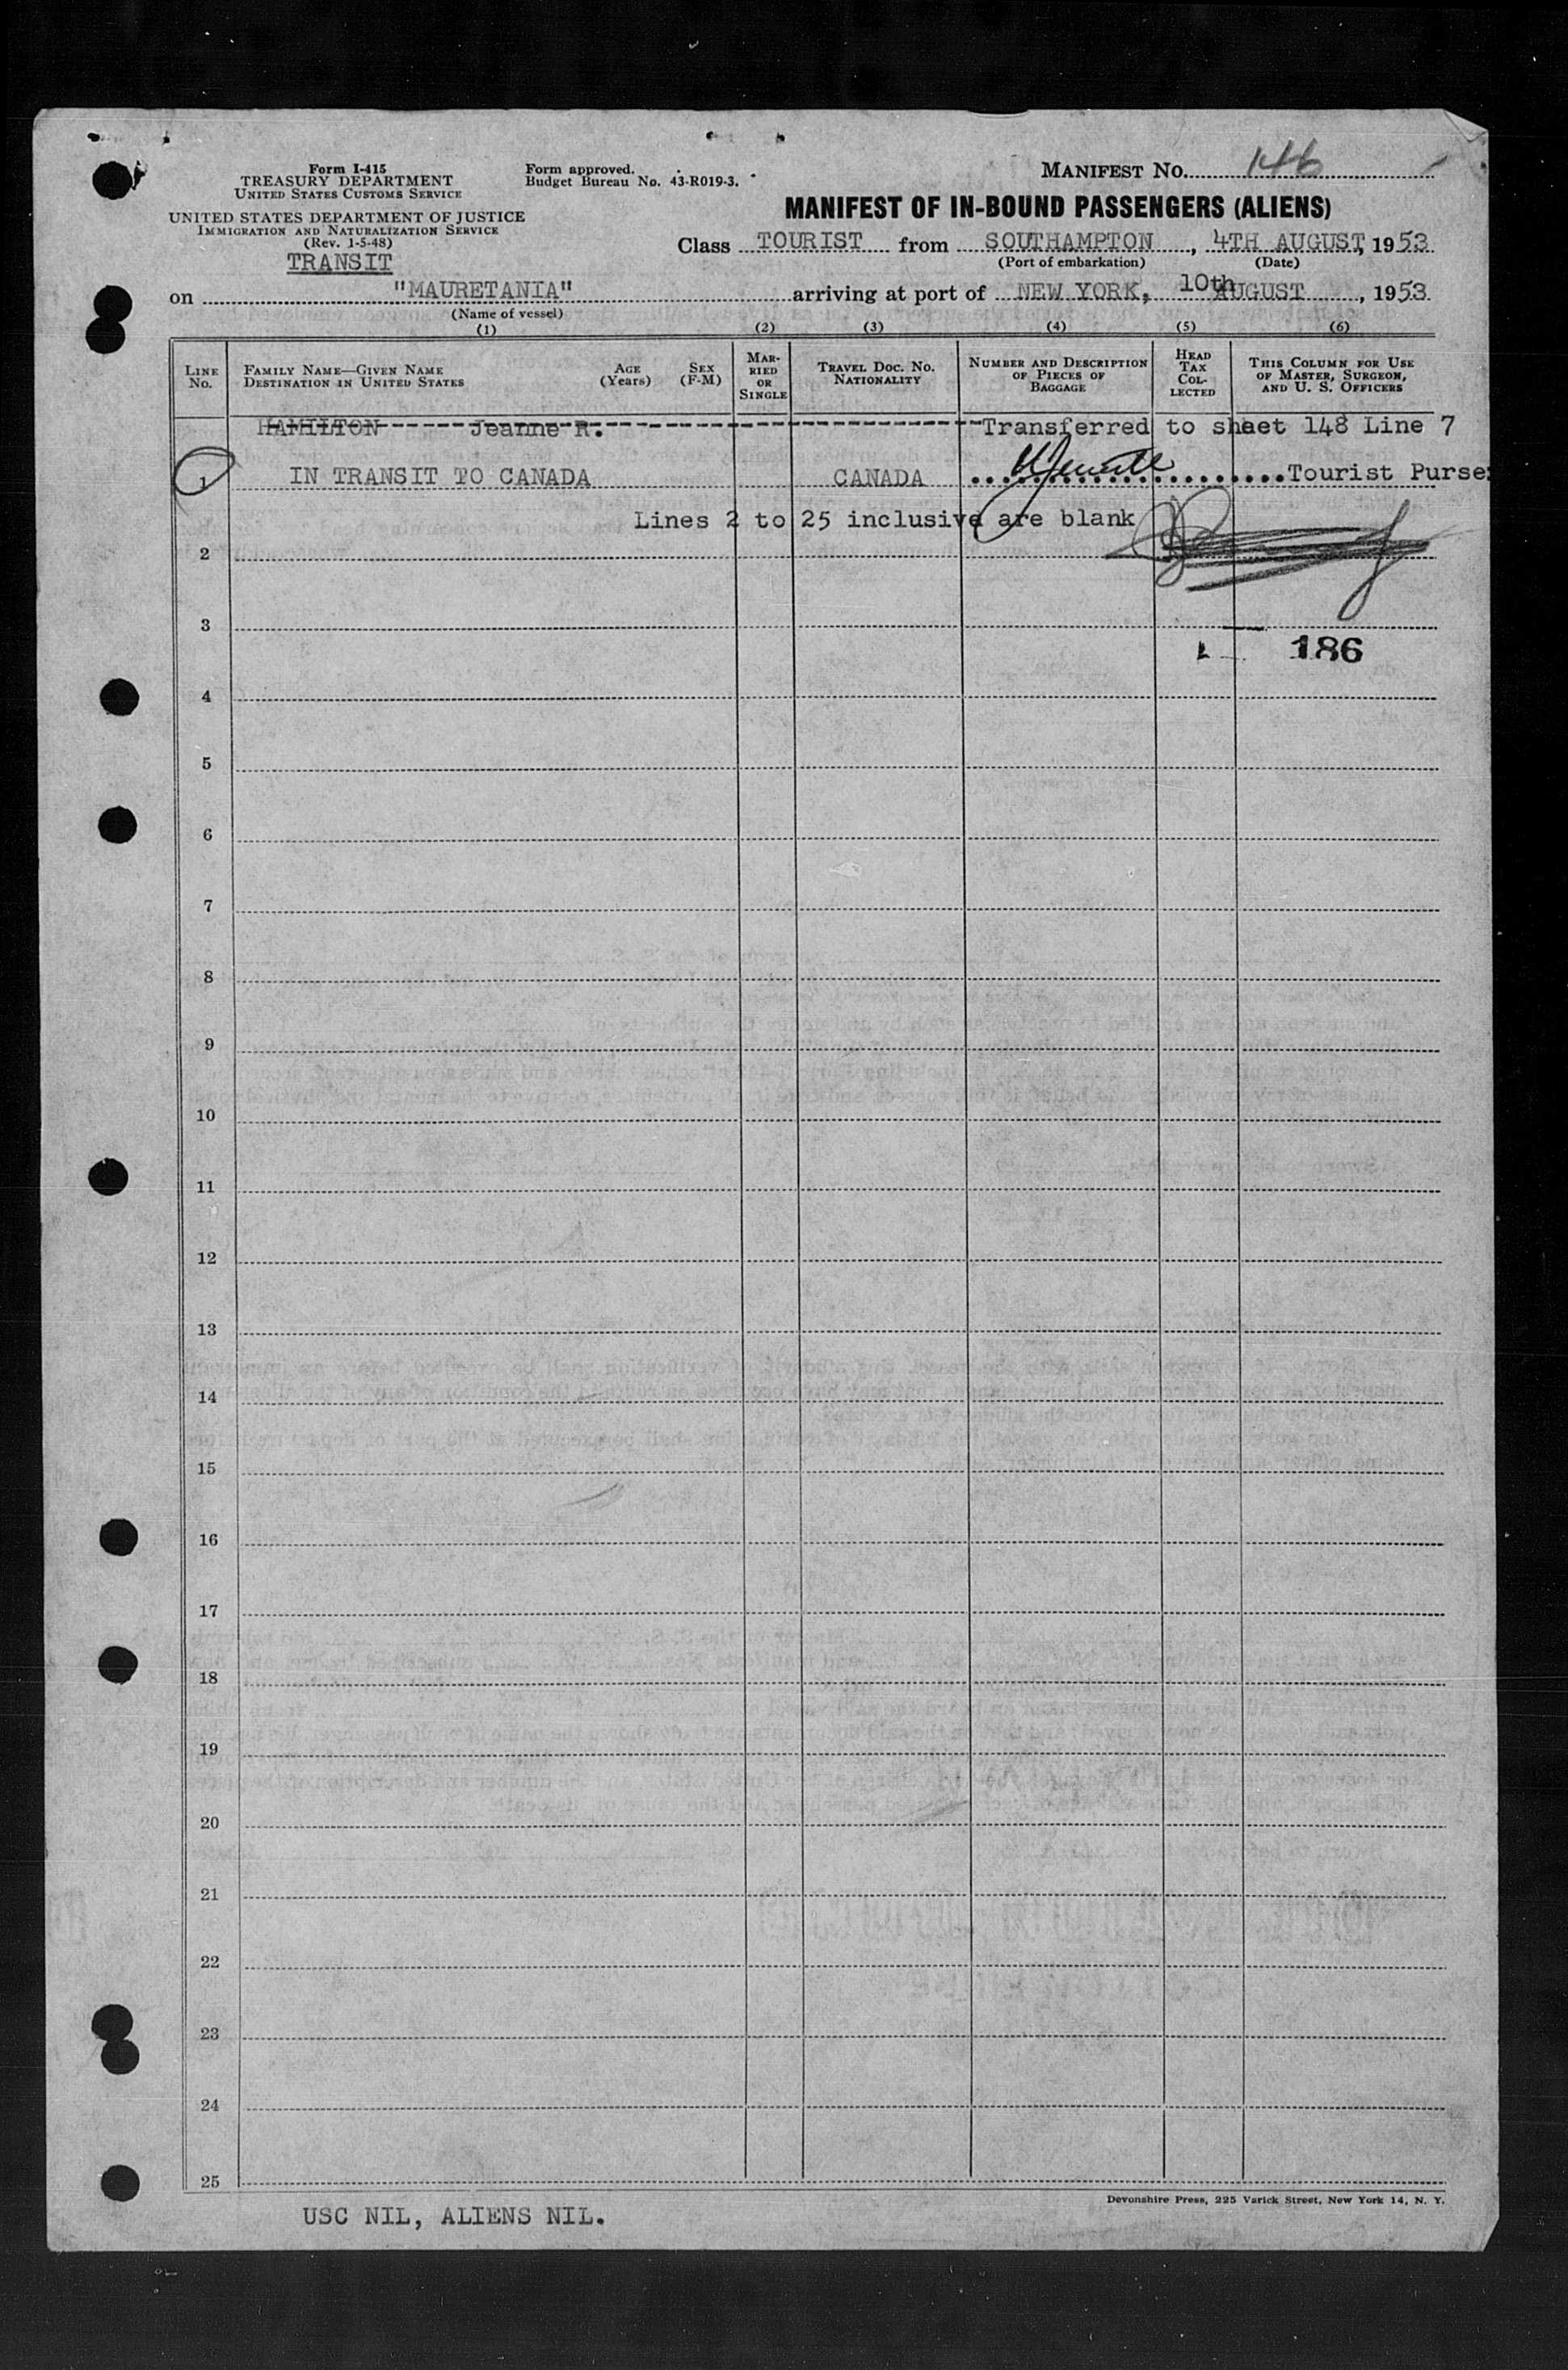 Form I-415
TREASURY DEPARTMENT
UNITED STATES CUSTOMS SERVICE
UNITED STATES DEPARTMENT OF JUSTICE
IMMIGRATION AND NATURALIZATION SERVICE
(Rev. 1-5-48)
TRANSIT
Form approved.
Budget Bureau No. 43-R019-3.
MANIFEST NO. 146
MANIFEST OF IN-BOUND PASSENGERS (ALIENS)
Class TOURIST from SOUTHAMPTON, 4TH AUGUST, 1953
(Port of embarkation) (Date)
on "MAURETANIA" arriving at port of NEW YORK, 10th AUGUST, 1953
(Name of vessel)
(1) (2) (3) (4) (5) (6)
LINE NO.
FAMILY NAME—GIVEN NAME
DESTINATION IN UNITED STATES
AGE (Years)
SEX (F-M)
MARRIED OR SINGLE
TRAVEL DOC. NO. NATIONALITY
NUMBER AND DESCRIPTION OF PIECES OF BAGGAGE
HEAD TAX COLLECTED
THIS COLUMN FOR USE OF MASTER, SURGEON, AND U. S. OFFICERS
HAMILTON Jeanne R. Transferred to sheet 148 Line 7
1 IN TRANSIT TO CANADA CANADA Tourist Purser
Lines 2 to 25 inclusive are blank
2
3
186
4
5
6
7
8
9
10
11
12
13
14
15
16
17
18
19
20
21
22
23
24
25
Devonshire Press, 225 Varick Street, New York 14, N. Y.
USC NIL, ALIENS NIL.